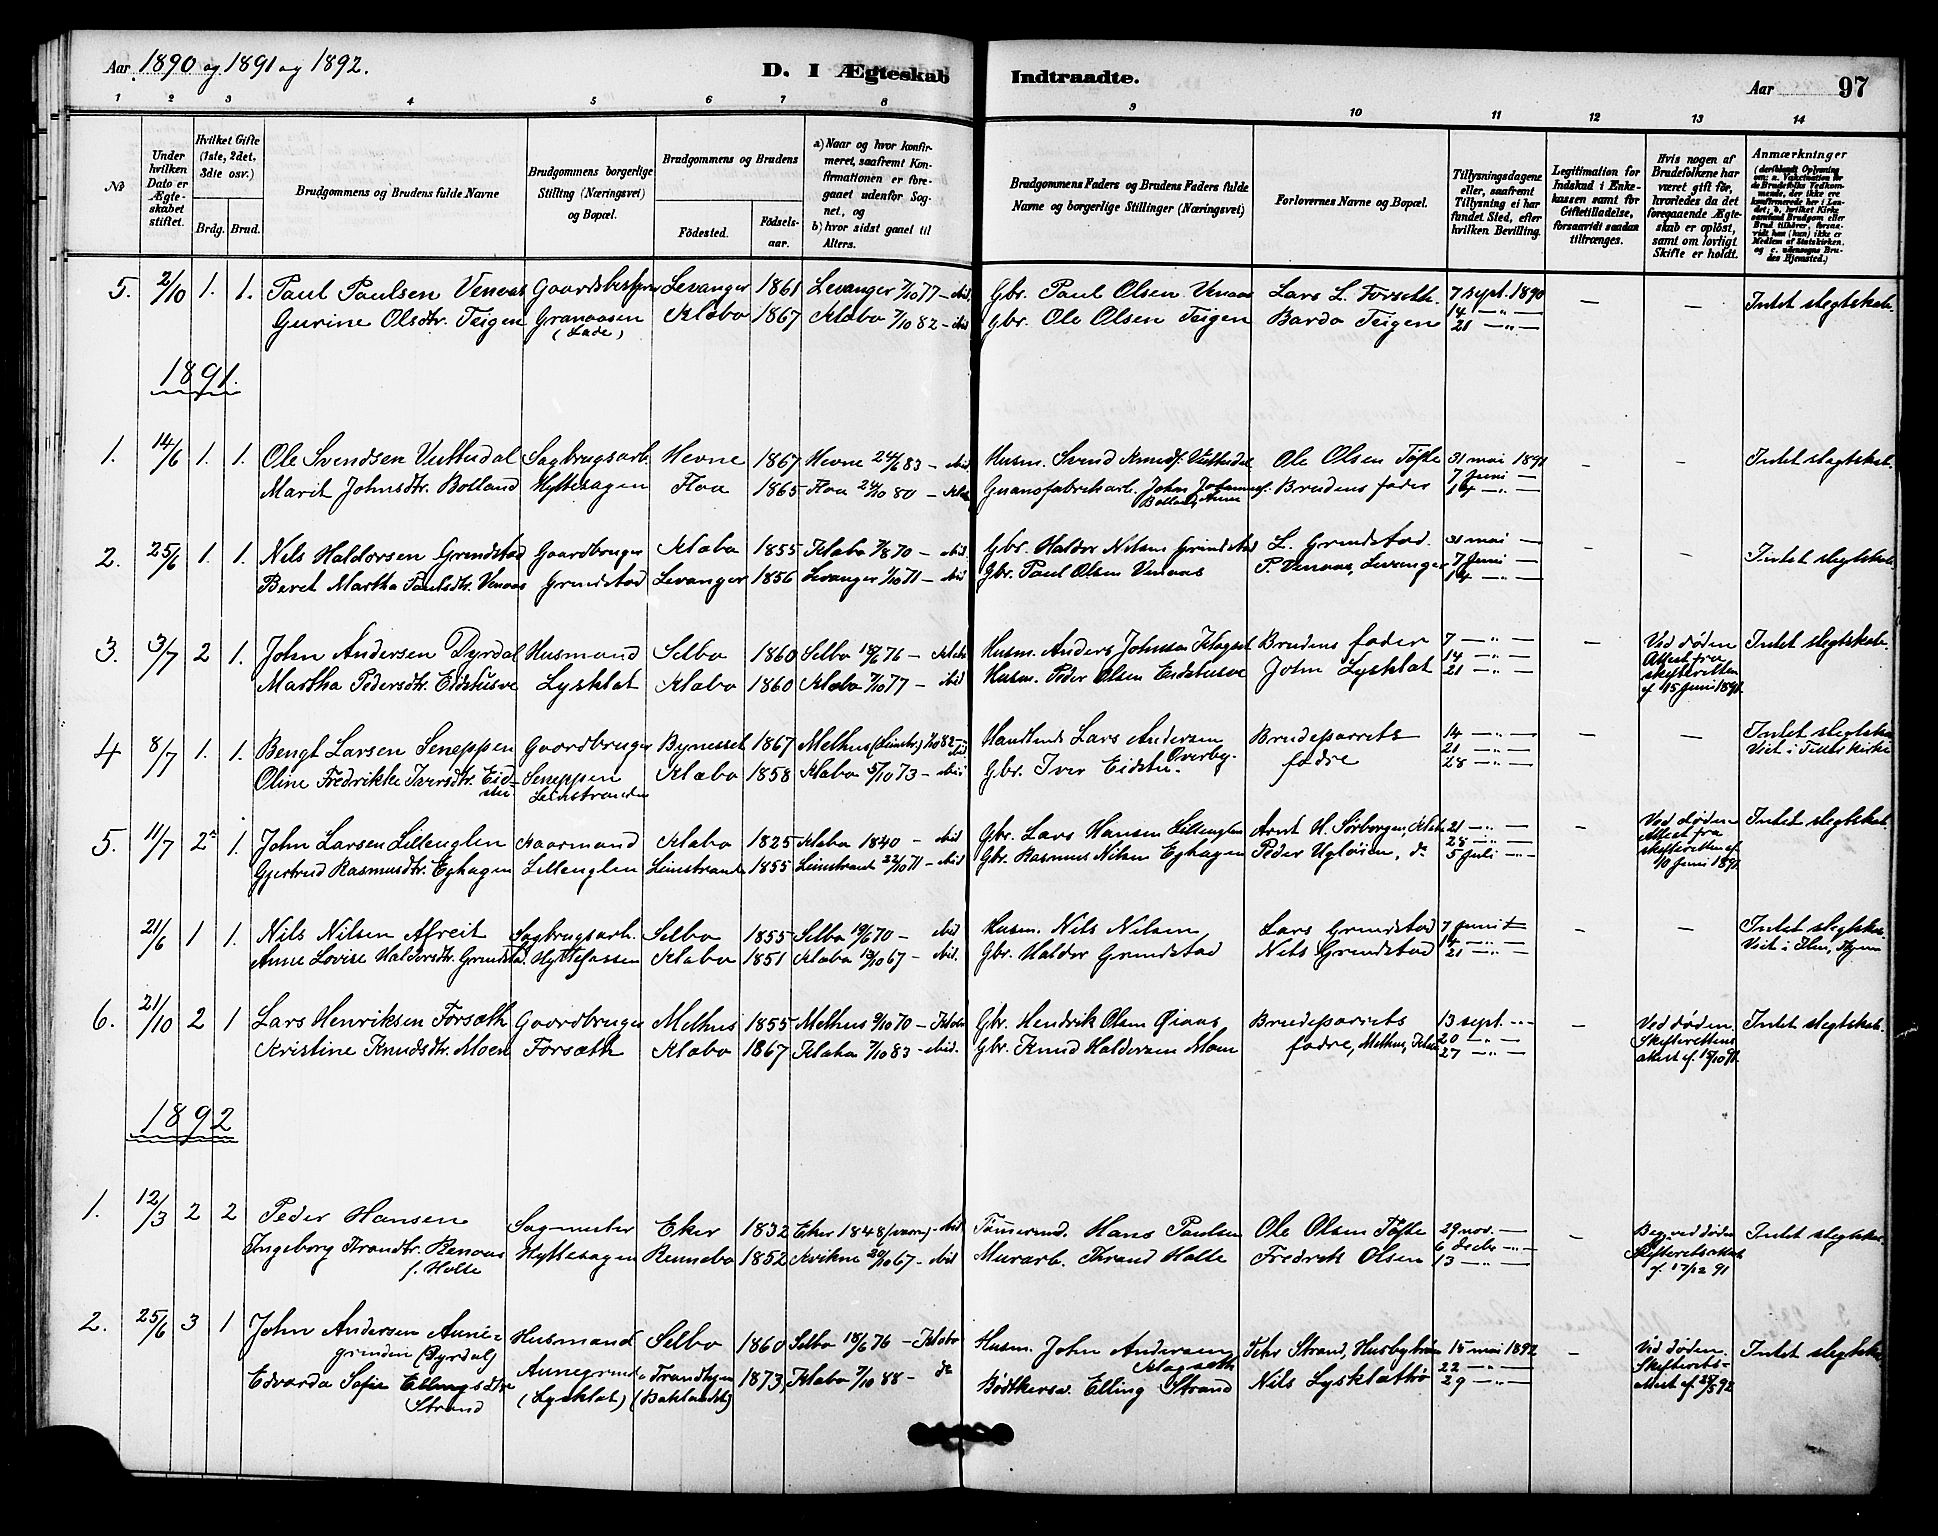 Aar 1890 og 1891 og 1892.
D. I Ægteskab Indtraadte.
Aar 97
1 2 3 4 5 6 7 8 9 10 11 12 13 14
№
Under hvilken Dato er Ægteskabet stiftet.
Hvilket Gifte (1ste, 2det, 3die osv.)
Brdg. Brud.
Brudgommens og Brudens fulde Navne
Brudgommens borgerlige Stilling (Næringsvei) og Bopæl.
Brudgommens og Brudens
Fødested.
Fødselsaar.
a) Naar og hvor konfirmeret, saafremt Konfirmationen er foregaaet udenfor Sognet, og
b) hvor sidst gaaet til Alters.
Brudgommens Faders og Brudens Faders fulde Navne og borgerlige Stillinger (Næringsvei)
Forlovernes Navne og Bopæl.
Tillysningsdagene eller, saafremt Tillysning ei har fundet Sted, efter hvilken Bevilling.
Legitimation for Indskud i Enkekassen samt for Giftetilladelse, forsaavidt saadan tiltrænges.
Hvis nogen af Brudefolkene har været gift før, hvorledes da det foregaaende Ægteskab er opløst, samt om lovligt Skifte er holdt.
Anmærkninger
(deriblandt Oplysning om: a. Vaksination for de Brudefolks Vedkommende, der ikke ere konfirmerede her i Landet; b. hvilket Kirkesamfund Brudgom eller Brud tilhører, forsaavidt han (hun) ikke er Medlem af Statskirken, og c. udensogns Brudes Hjemsted.)
5. 2/10 1. 1. Paul Paulsen Venaas Gaardsbestyrer Levanger 1861 Levanger 7/10 77 – ibid. Gbr. Paul Olsen Venaas Lars L. Forseth. 7 sept. 1890 – – Intet slegtskab.
Gurine Olsdtr. Teigen Granaasen Klæbo 1867 Klæbo 7/10 82 – ibid Gbr. Ole Olsen Teigen Bardo Teigen 14 – " –
(Lade) 21 – " –
1891.
1. 14/6 1. 1. Ole Svendsen Vuttudal Sagbrugsarb. Hevne 1867 Hevne 24/6 83 – ibid. Husm. Svend Vuttudal Ole Olsen Tøfte 31 mai 1891 – – Intet slegtskab.
Marit Johnsdtr. Botland Hyttesagen Flaa 1865 Flaa 24/10 80 – Guanofabrikarb. John Brudens fader 7 Juni –
14 – " –
2. 25/6 1. 1. Nils Haldorsen Grendstad Gaardbruger Klæbo 1855 Klæbo 7/8 70 – ibid. Gbr. Haldor Nilsen Grendstad L. Grendstad. 31 mai – – – Intet slegtskab.
Beret Martha Paulsdtr. Venaas Grendstad Levanger 1856 Levanger 1/10 71 – ibid Gbr. Paul Olsen Venaas P. Venaas, Levanger 7 Juni –
14 – " –
3. 3/7 2 1. John Andersen Dyrdal Husmand Selbo 1860 Selbo 18/6 76 – Klæbo Husm. Anders Johnsen Brudens fader 7 – " – – Ved døden Intet slegtskab.
Martha Pedersdtr. Eidstuvo Lysklæt Klæbo 1860 Klæbo 7/10 77 – ibid Husm. Peder Olsen Eidstuvo John Lysklæt 14 – " – Attest fra
21 – " – skifteretten
af 15 Juni 1891.
4 8/7 1. 1. Bengt Larsen Seneppen Gaardbruger Bynesset 1867 Melhus (Leinstr.) 1/10 82 – ibid Handlende Lars Andersen Overby. Brudeparrets 14 – " – – – Intet slegtskab
Oline Fredrikke Iversdtr. Eidstu Seneppen Klæbo 1858 Klæbo 5/10 73 – ibid Gbr. Iver Eidstu. fædre 21 – " – Viet i kirke
Leinstranden 28 – " –
5. 11/7 2. 1. John Larsen Lillenglen Kaarmand Klæbo 1825 Klæbo 1840 – ibid Gbr. Lars Hansen Lillenglen Arnt H. Sørborgen, Klæbo 21 – " – – Ved døden Intet slegtskab.
Gjertrud Rasmusdtr. Eghagen Lillenglen Leinstrand 1855 Leinstrand 22/10 71 – ibid Gbr. Rasmus Nilsen Eghagen Peder Ugløien, do 28 – " – Attest fra
5 Juli – " – skifteretten af
10 Juni 1891
21/6 1 1. Nils Nilsen Afreit Sagbrugsarb. Selbo 1855 Selbo 19/6 70 – ibid Husm. Nils Nilsen Lars Grendstad 7 Juni – – Intet slegtskab.
Anne Lovise Haldorsdtr. Grendstad Hyttefossen Klæbo 1851 Klæbo 13/10 67 – ibid. Gbr. Haldor Grendstad Nils Grendstad 14 – " – Viet i Ilen, Thjem
21 – " –
6. 21/10 2 1 Lars Henriksen Forsæth Gaardbruger Melhus 1855 Melhus 9/10 70 – Klæbo Gbr. Hendrik Olsen Øiaas Brudeparrets 13 sept. – " – Ved døden. Intet slegtskab.
Kristine Knudsdtr. Moen Forsæth Klæbo 1867 Klæbo 7/10 83 – ibid. Gbr. Knud Haldorsen Moen fædre, Melhus, Klæbo 20 – " – Skifterettens
27 – " – attest af 15/10 91.
1892
1. 12/3 2 2 Peder Hansen Sagmester Eker 1832 Eker 1848 – ibid Tømmermd. Hans Paulsen Ole Olsen Tøfte 29 nov. – – Beg. ved døden Intet slegtskab.
Ingeborg Thrandtr. Renaas Hyttesagen Rennebo 1852 Kvikne 20/10 67 – ibid Murarb. Thrand Holte Fredrik Olsen 6 decbr – " – Skifteretsattest
f. Holte 13 – " – af 17/12 91
2. 25/6 3 1 John Andersen Aunegrinden (Dyrdal) Husmand Selbo 1860 Selbo 18/6 76 – Klæbo Husm. John Andersen Klegseth Petr Strand, Husbytrøen 15 mai 1892 – Ved døden. Intet slegtskab
Edvarda Sofie Ellingsdtr Strand Aunegrind (Lysklæt) Trondhjem (Baklandet) 1873 Klæbo 7/10 88 – do Bødkersv. Elling Strand Nils Lysklætrø 22 – " – Skifterets-
29 – " – attest af 24/5 92